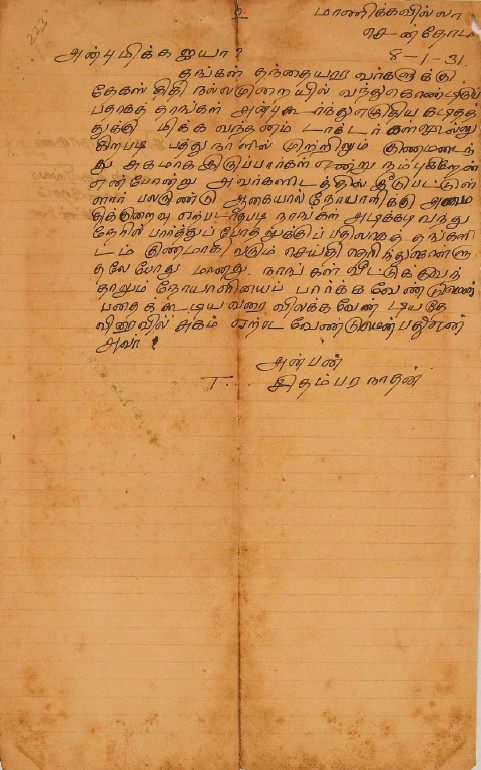 223
உ
மாணிக்கவில்லா
8-1-31.
அன்புமிக்க ஐயா?
தங்கள் தந்தையவர்களுக்கு
தேகஸ்திதி நல்லமுறையில் வந்துகொண்டிருப்
பதாகத் தாங்கள் அன்புகூர்ந்து எழுதிய கடிதத்
துக்கு மிக்க வந்தனம் டாக்டர் கள் சொல்லு
கிறபடி பத்து நாளில் முற்றிலும் குணமடைந்
து சுகமாக இருப்பார்கள் என்று நம்புகிறேன்
என்போன்று அவர்களிடத்தில் ஈடுபட்டுள்
ளார் பலருண்டு ஆகையால் நோயாளிக்கு அமை
திக்குறைவு ஏற்படாதபடி நாங்கள் அடிக்கடி வந்து
நேரில் பார்த்துப் போதற்குப் பதிலாகத் தங்களி
டம் குணமாகி வரும் செய்தி தெரிந்துகொள்ளு
தலே போதுமானது. நாங்கள் வீட்டுக்கு வந்
தாலும் நோயாளியைப் பார்க்க வேண்டுமென்
பதைக் கூடிய வரை விலக்க வேண் டியதே
விரைவில் சுகம் ஏற்பட வேண்டுமென்பதே என்
அவா ?
அன்பன்
T. சிதம்பர நாதன்